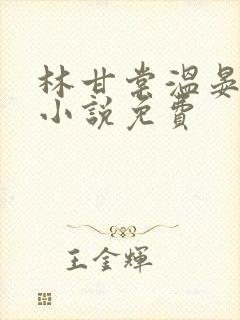 林甘棠溫晏
小說免費
王金輝